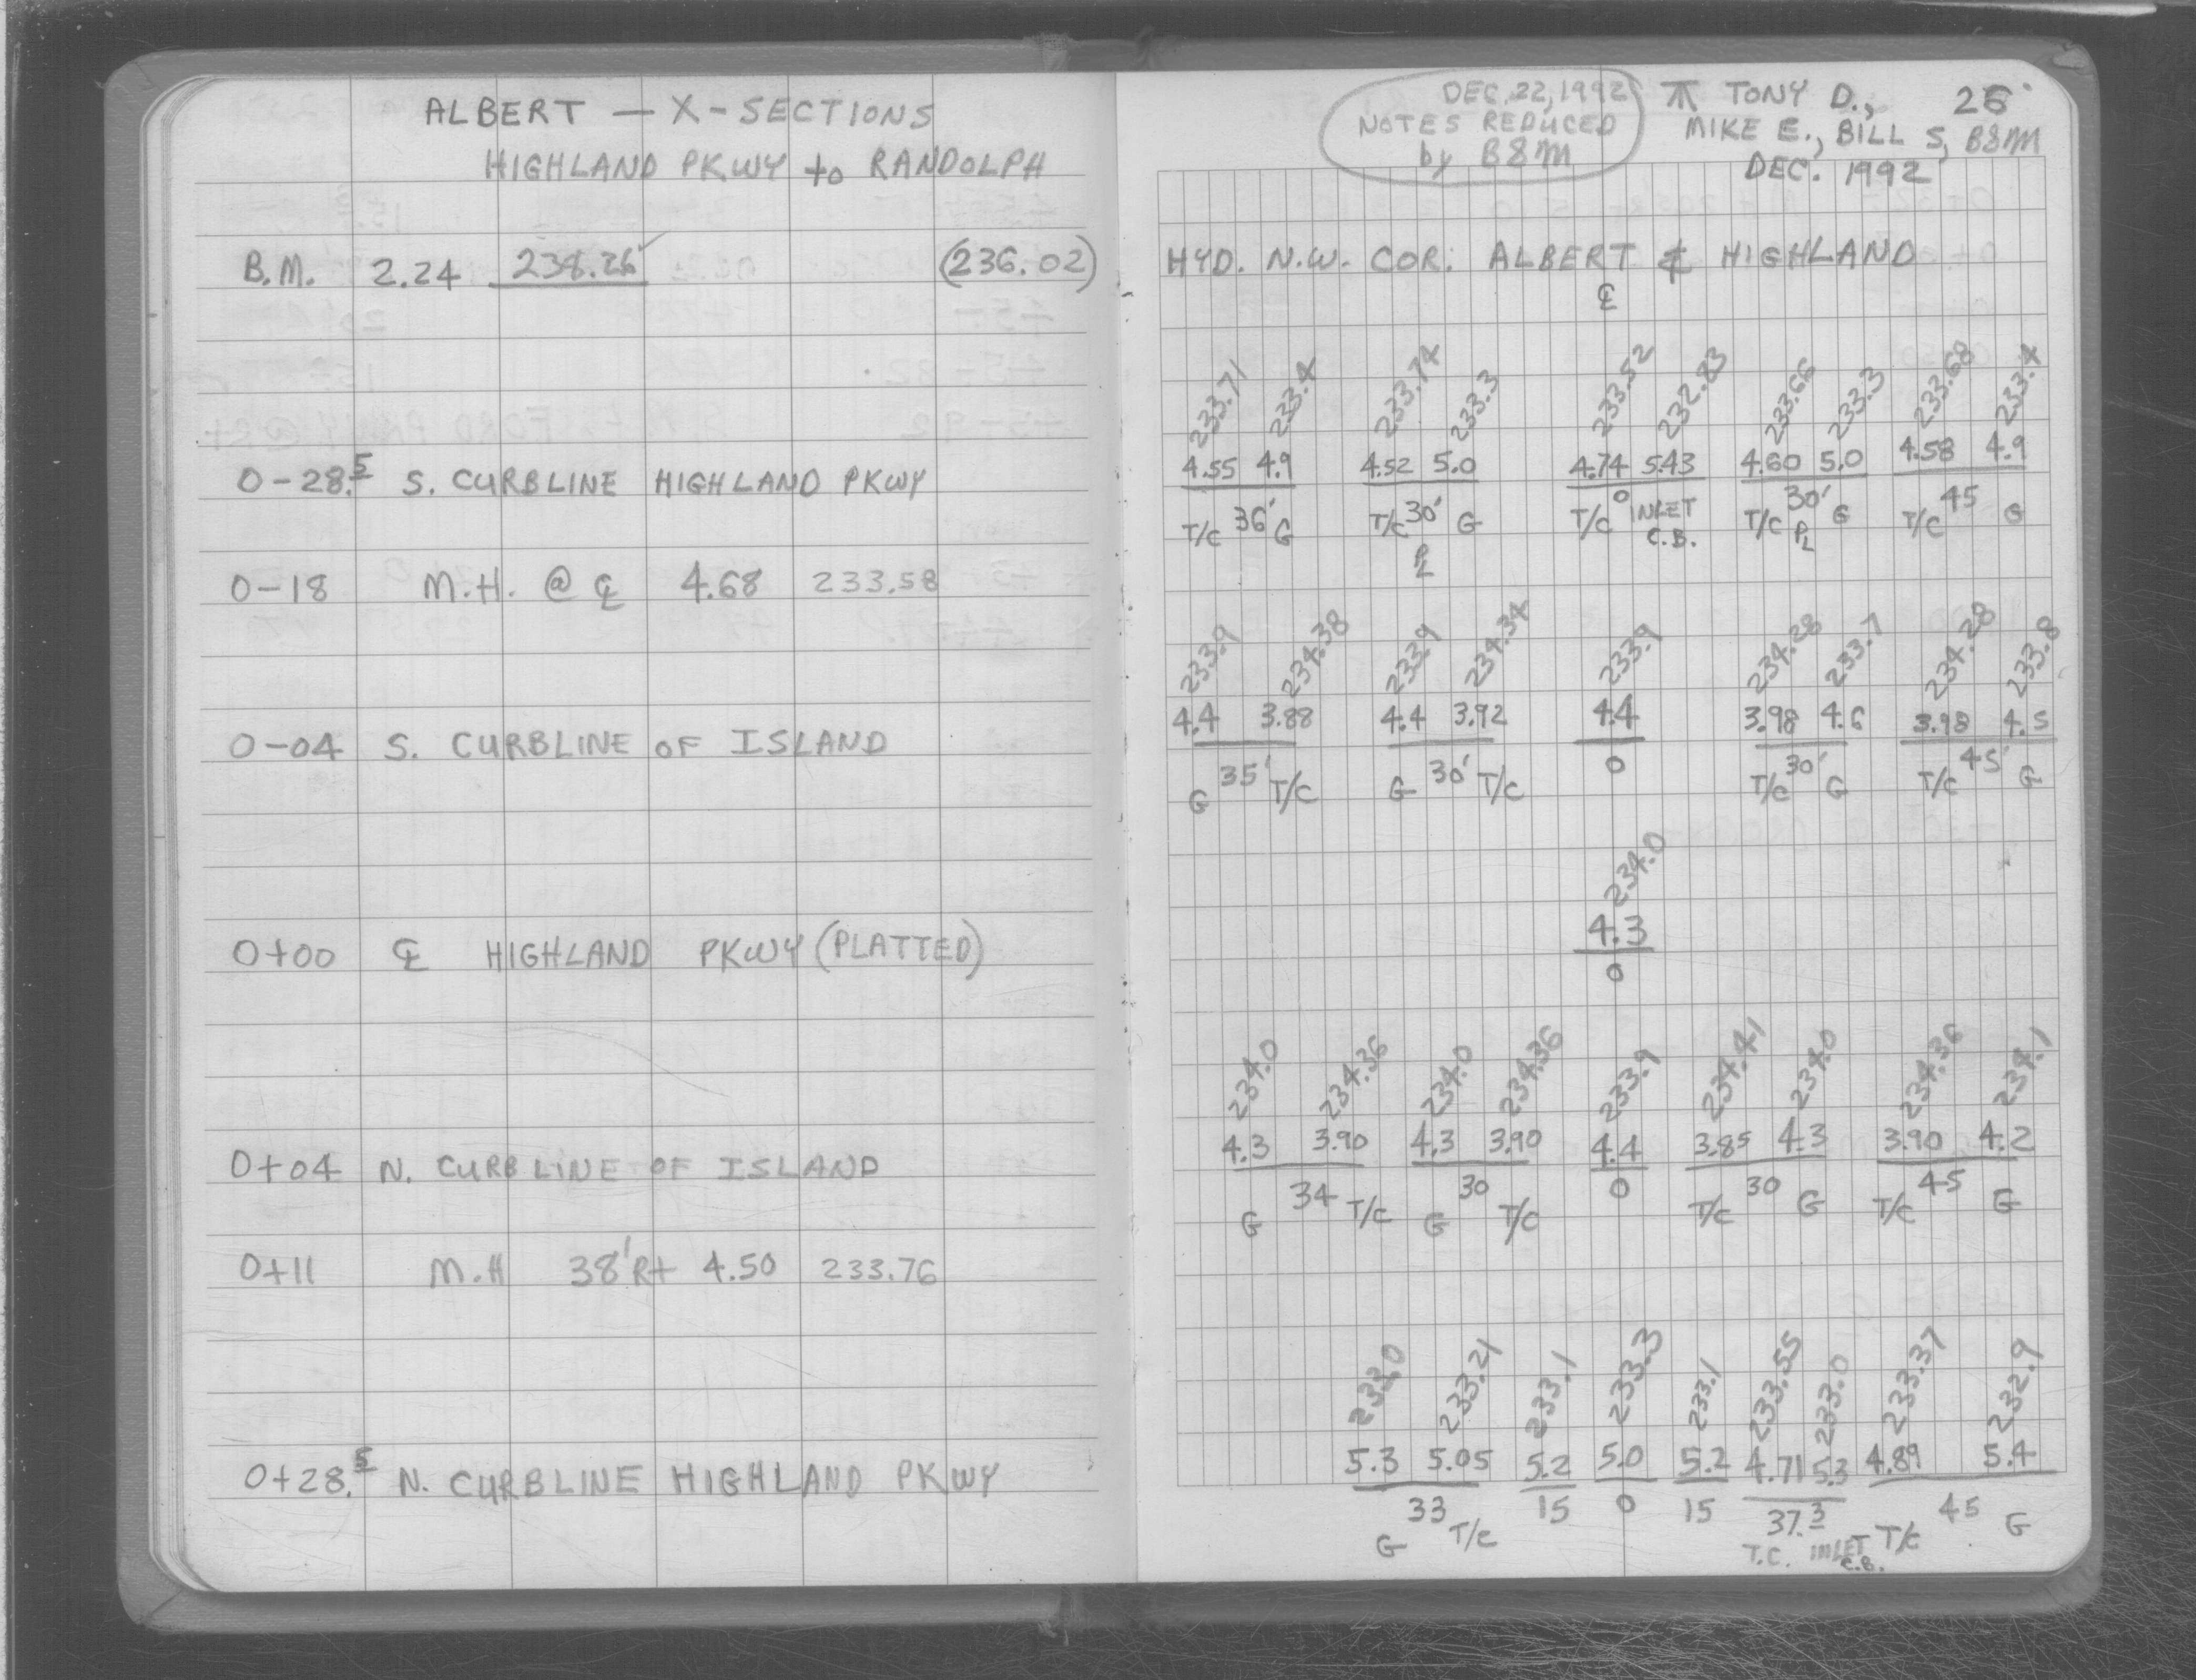 ALBERT — X-SECTIONS
HIGHLAND PKWY to RANDOLPH
B.M. 2.24 238.26 ✓ (236.02)
0-28.5 S. CURBLINE HIGHLAND PKWY
0-18 M.H. @ ℄ 4.68 233.58
0-04 S. CURBLINE OF ISLAND
0+00 ℄ HIGHLAND PKWY (PLATTED)
0+04 N. CURBLINE OF ISLAND
0+11 M.H 38' Rt 4.50 233.76
0+28.5 N. CURBLINE HIGHLAND PKWY
DEC. 22, 1992
NOTES REDUCED
by B&M
⊼ TONY D.,
MIKE E., BILL S, B&M
DEC. 1992
HYD. N.W. COR. ALBERT & HIGHLAND
℄
233.71 233.4 233.74 233.3 233.52 232.83 233.66 233.3 233.68 233.4
4.55 4.9 4.52 5.0 4.74 5.43 4.60 5.0 4.58 4.9
T/C 36' G T/C 30' G T/C 0 INLET T/C 30' G T/C 45 G
℄ C.B. ℄
233.9 234.38 233.9 234.34 233.9 234.28 233.7 234.28 233.8
4.4 3.88 4.4 3.92 4.4 3.98 4.6 3.98 4.5
G 35' T/C G 30' T/C 0 T/C 30' G T/C 45' G
234.0
4.3
0
234.0 234.36 234.0 234.36 233.9 234.41 234.0 234.36 234.1
4.3 3.90 4.3 3.90 4.4 3.85 4.3 3.90 4.2
G 34 T/C G 30 T/C 0 T/C 30 G T/C 45 G
233.0 233.21 233.1 233.3 233.1 233.55 233.0 233.37 232.9
5.3 5.05 5.2 5.0 5.2 4.71 5.3 4.89 5.4
G 33 T/C 15 0 15 37.3 T/C 45 G
T.C. INLET
C.B.